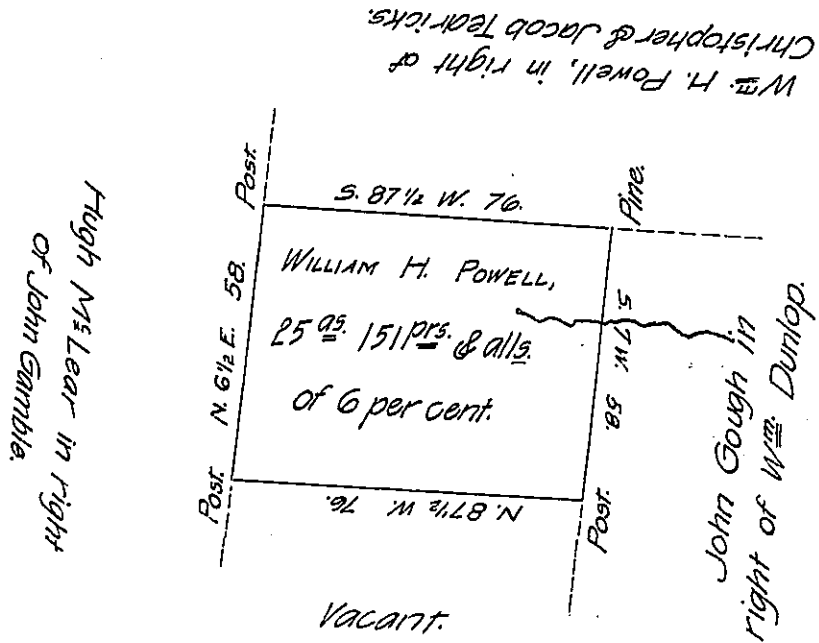 Wm. H. Powell, in right of
Christopher & Jacob Tedricks.
Post.
S. 87 1/2 W. 76.
Pine.
Hugh McLear in right
of John Gamble.
N. 6 1/2 E. 58.
WILLIAM H. POWELL,
25 as. 151 prs. & alls.
of 6 per cent.
S. 7 W. 58.
John Gough in
right of Wm. Dunlop.
Post.
N. 87 1/2 W. 76.
Post.
Vacant.